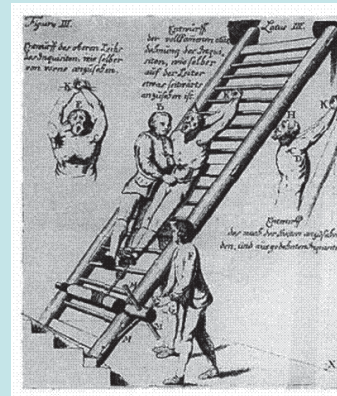 Figura III.
Latus III.
Entwurff des obern Leibs
des Inquisiten, wie selber
von vorne anzusehen.
Entwurff
der vollkommenen aus
dehnung des Inqui-
siten, wie selber
auf der Leiter
etwas seitwärts
anzusehen ist.
K
E
L
K
K
H
D
Entwurff
des nach der
den, und ausgedehnten Inquisiten
F
M
M
X